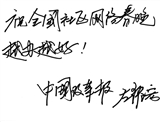 祝全国社区网络春晚
越办越好！
中国改革报